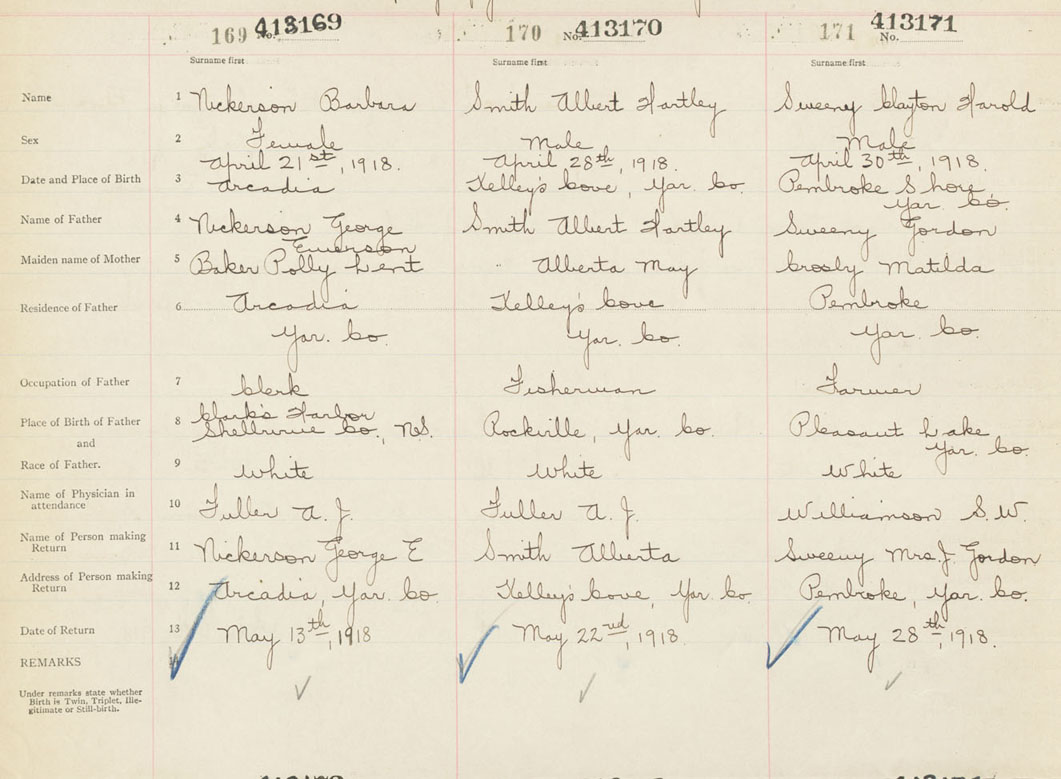 169 No. 413169 170 No. 413170 171 No. 413171
Surname first Surname first Surname first
Name 1 Nickerson Barbara Smith Albert Hartley Sweeny Clayton Harold
Sex 2 Female Male Male
April 21st, 1918. April 28th, 1918. April 30th, 1918.
Date and Place of Birth 3 Arcadia Kelley's Cove, Yar. Co. Pembroke Shore,
Yar. Co.
Name of Father 4 Nickerson George Smith Albert Hartley Sweeny Gordon
Emerson
Maiden name of Mother 5 Baker Polly Lent " Alberta May Crosby Matilda
Residence of Father 6 Arcadia Kelley's Cove Pembroke
Yar. Co. Yar. Co. Yar. Co.
Occupation of Father 7 Clerk Fisherman Farmer
Clark's Harbor
Place of Birth of Father 8 Shelburne Co., N.S. Rockville, Yar. Co. Pleasant Lake
and Yar. Co.
Race of Father. 9 White White White
Name of Physician in
attendance 10 Fuller A. J. Fuller A. J. Williamson S. W.
Name of Person making
Return 11 Nickerson George E Smith Alberta Sweeny Mrs. J. Gordon
Address of Person making
Return 12 Arcadia, Yar. Co. Kelley's Cove, Yar. Co. Pembroke, Yar. Co.
Date of Return 13 May 13th, 1918 May 22nd, 1918. May 28th, 1918.
REMARKS 14
Under remarks state whether
Birth is Twin, Triplet, Ille-
gitimate or Still-birth.